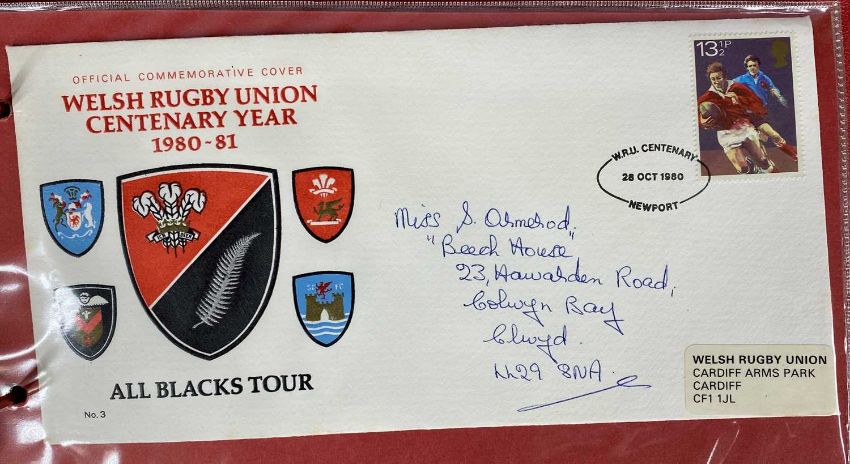 OFFICIAL COMMEMORATIVE COVER
WELSH RUGBY UNION
CENTENARY YEAR
1980-81
ALL BLACKS TOUR
No. 3
13½P
W.R.U. CENTENARY
28 OCT 1980
NEWPORT
Miss S. Ormerod,
"Beech House"
23, Hawarden Road,
Colwyn Bay
Clwyd.
LL29 8NA.
WELSH RUGBY UNION
CARDIFF ARMS PARK
CARDIFF
CF1 1JL